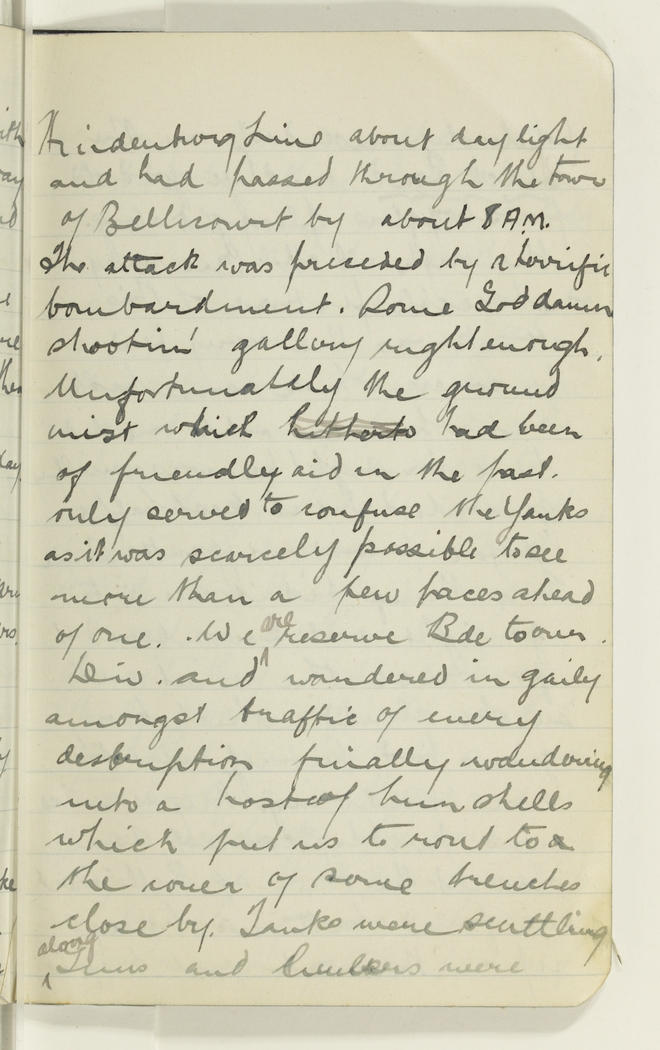 Hindenburg Line about daylight
and had passed through the town
of Bellicourt by about 8 A.M.
The attack was preceded by a terrific
bombardment. Some Goddamn
shootin' gallery right enough.
Unfortunately the ground
mist which hitherto had been
of friendly aid in the past.
only served to confuse the Yanks
as it was scarcely possible to see
more than a few paces ahead
of one. We are reserve Bde to our
Div. and wandered in gaily
amongst traffic of every
description finally wandering
into a host of hun shells
which put us to rout to
the cover of some trenches
close by. Tanks were scuttling
along
Guns and limbers were